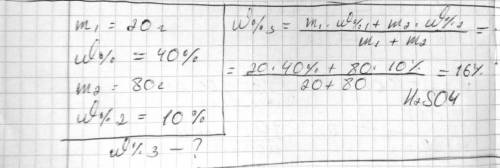 m₁ = 20 г
ω% = 40%
m₂ = 80г
ω%2 = 10%
ω%3 - ?
ω%₃ = (m₁ · ω%₁ + m₂ · ω%₂) / (m₁ + m₂) =
= (20 · 40% + 80 · 10%) / (20 + 80) = 16%
H₂SO4